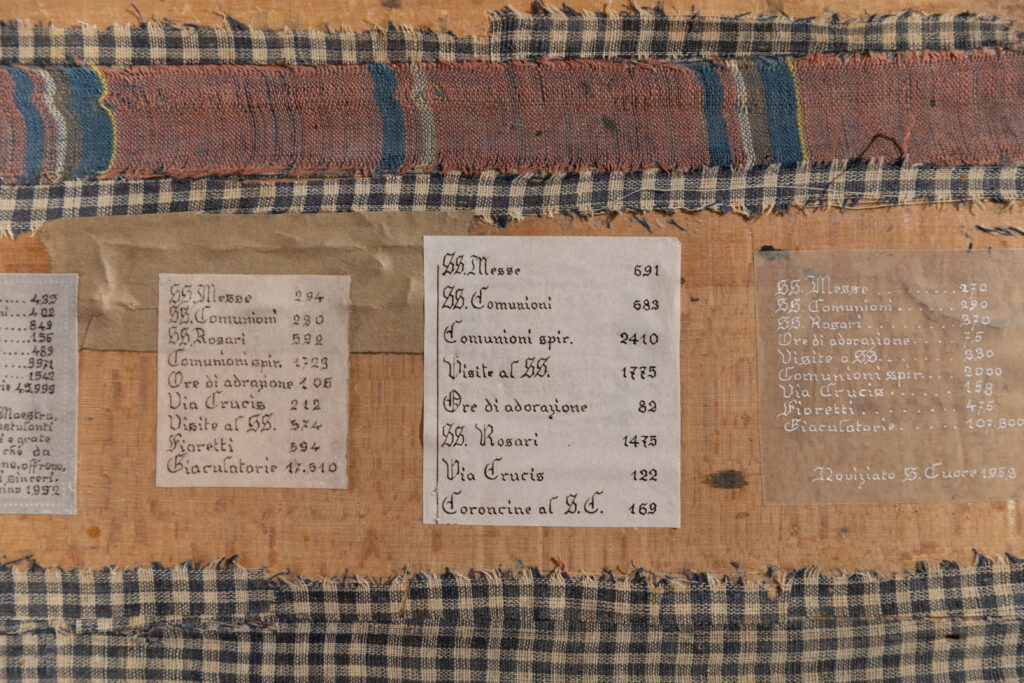 ..... 435
ni....402
.... 849
..... 156
.... 489
.... 3971
.... 1542
rie 45.999
Maestra,
ostulanti
i e grate
che da
ono, offrono,
i sinceri.
1952
SS. Messe 294
SS. Comunioni 290
SS. Rosari 592
Comunioni spir. 1723
Ore di adrazione 108
Via Crucis 212
Visite al SS. 574
Fioretti 594
Giaculatorie 17.510
SS. Messe 691
SS. Comunioni 683
Comunioni spir. 2410
Visite al SS. 1775
Ore di adorazione 82
SS. Rosari 1475
Via Crucis 122
Coroncine al S.C. 169
SS. Messe . . . . . . . . . 270
SS. Comunioni . . . . . . 290
SS. Rosari . . . . . . . . . 370
Ore di adorazione . . . . . 75
Visite a SS. . . . . . . . . 390
Comunioni spir . . . . 2000
Via Crucis . . . . . . . . 158
Fioretti . . . . . . . . . 475
Giaculatorie . . . . . 107.300
Noviziato S. Cuore 1953